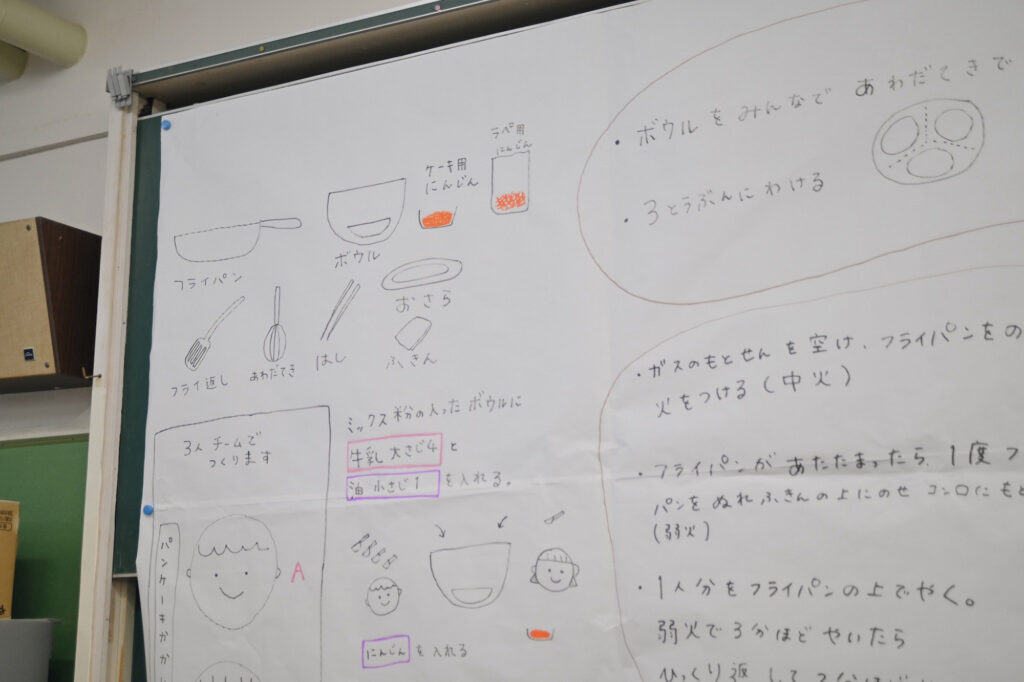 ラペ用
にんじん
ケーキ用
にんじん
フライパン
ボウル
おさら
フライ返し
あわだてき
はし
ふきん
3人チームで
つくります
パンケーキかか
A
ミックス粉の入ったボウルに
牛乳 大さじ4 と
油 小さじ1 を入れる。
にんじん を入れる
・ボウルをみんなで あわだてきで
・3とうぶんにわける
・ガスのもとせんを空け、フライパンをの
火をつける(中火)
・フライパンがあたたまったら、1度フ
パンをぬれふきんの上にのせ コンロにもと
(弱火)
・1人分をフライパンの上でやく。
弱火で3分ほどやいたら
ひっくり返して